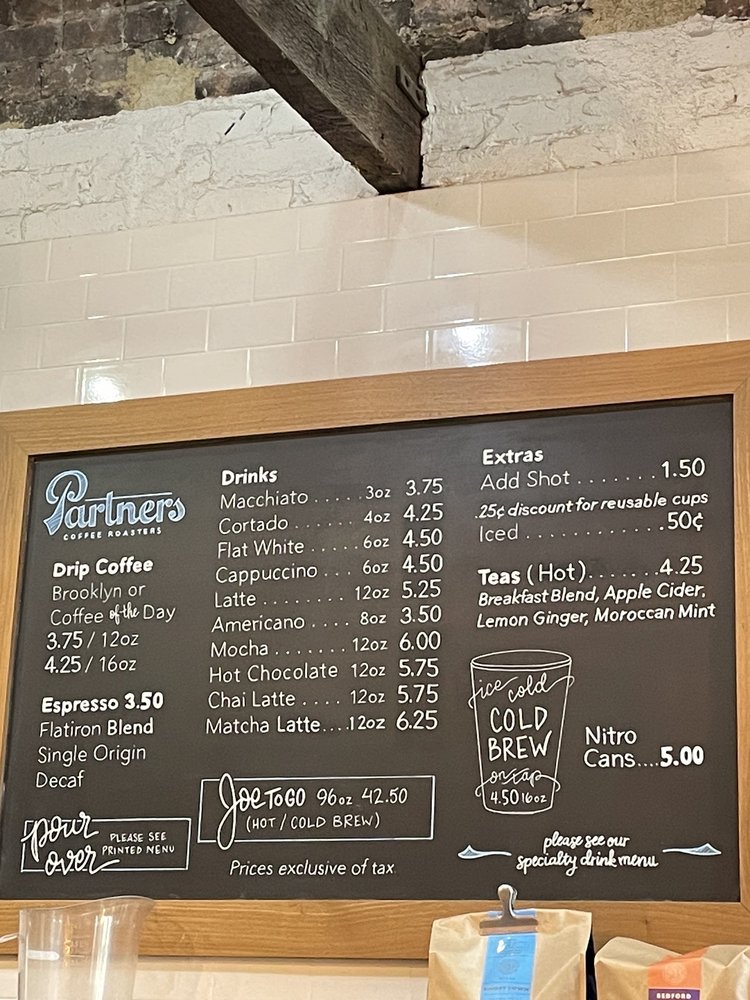 Partners
COFFEE ROASTERS
Drip Coffee
Brooklyn or
Coffee of the Day
3.75 / 12oz
4.25 / 16oz
Espresso 3.50
Flatiron Blend
Single Origin
Decaf
pour over
PLEASE SEE
PRINTED MENU
Drinks
Macchiato ..... 3oz 3.75
Cortado ....... 4oz 4.25
Flat White ..... 6oz 4.50
Cappuccino ... 6oz 4.50
Latte ........ 12oz 5.25
Americano .... 8oz 3.50
Mocha ....... 12oz 6.00
Hot Chocolate 12oz 5.75
Chai Latte .... 12oz 5.75
Matcha Latte....12oz 6.25
Joe TO GO 96oz 42.50
(HOT / COLD BREW)
Prices exclusive of tax
Extras
Add Shot ....... 1.50
.25¢ discount for reusable cups
Iced ............ .50¢
Teas (Hot).......4.25
Breakfast Blend, Apple Cider,
Lemon Ginger, Moroccan Mint
ice cold
COLD
BREW
on tap
4.50 16oz
Nitro
Cans....5.00
please see our
specialty drink menu
BEDFORD